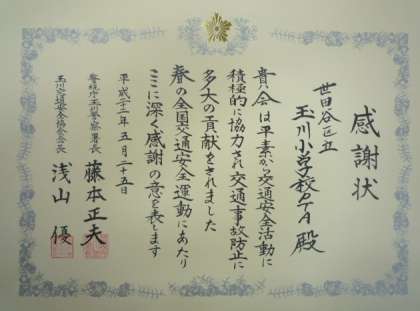 感謝状
世田谷区立
玉川小学校PTA 殿
貴会は平素から交通安全活動に
積極的に協力され交通事故防止に
多大の貢献をされました
春の全国交通安全運動にあたり
ここに深く感謝の意を表します
平成二十二年五月二十五日
警視庁玉川警察署長 藤本正夫
玉川交通安全協会会長 浅山 優